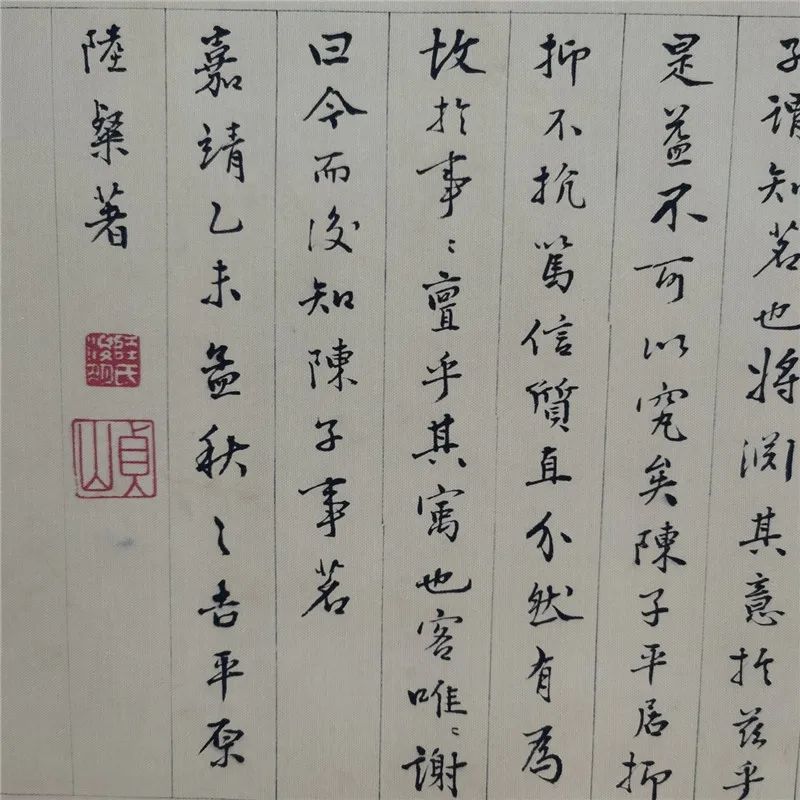 子謂知茗也將淵其意於茲乎
是益不可以究矣陳子平居抑
抑不抗篤信質直介然有為
故於事〻亶乎其寓也客唯〻謝
曰今而後知陳子事茗
嘉靖乙未孟秋之吉平原
陸粲著